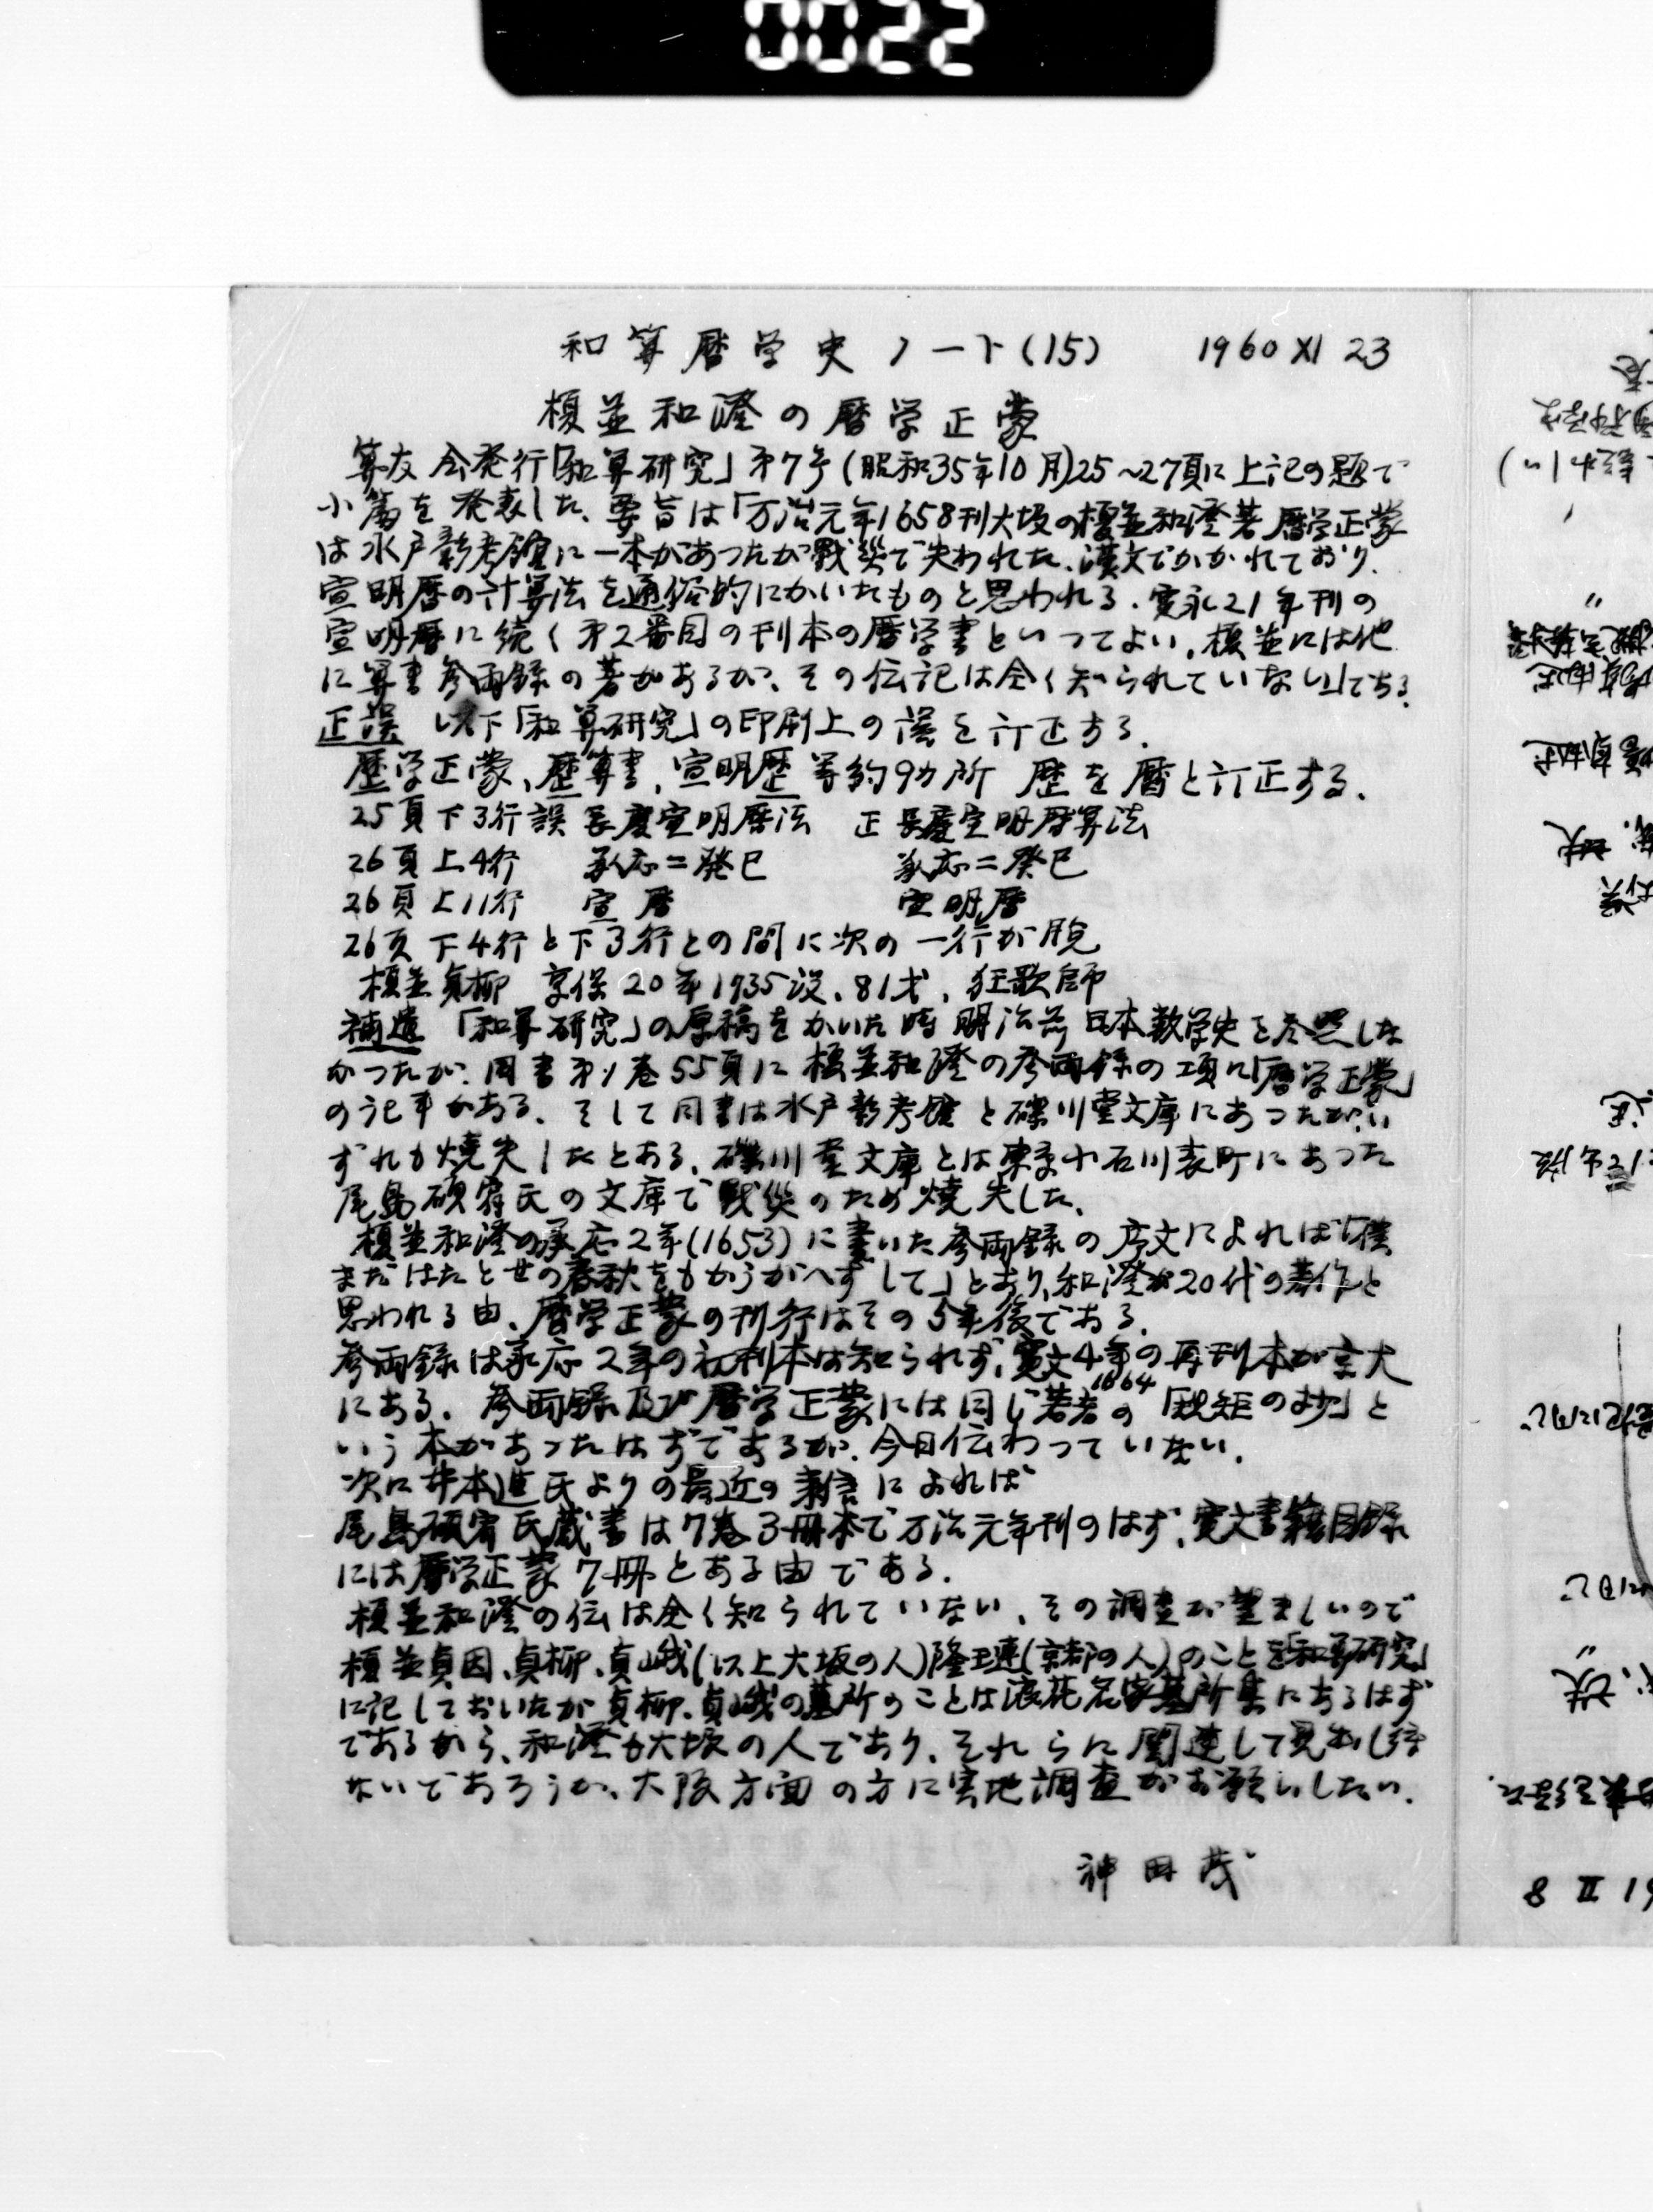 0022
和算暦学史ノート(15) 1960 XI 23
榎並和澄の暦学正蒙
算友会発行「和算研究」才7号(昭和35年10月)25~27頁に上記の題で
小篇を発表した、要旨は「万治元年1658刊大坂の榎並和澄著暦学正蒙
は水戸彰考館に一本があつたが戦災で失われた、漢文でかかれており、
宣明暦の計算法を通俗的にかいたものと思われる.寛永21年刊の
宣明暦に続く才2番目の刊本の暦学書といつてよい、榎並には他
に算書参両録の著があるが、その伝記は全く知られていない」である.
正誤 以下「和算研究」の印刷上の誤を訂正する.
歴学正蒙、歴算書、宣明歴等約9カ所 歴を暦と訂正する、
25頁下3行誤 長慶宣明暦法 正 長慶宣明暦算法
26頁上4行 承応=癸巳 承応二癸巳
26頁上11行 宣暦 宣明暦
26頁下4行と下3行との間に次の一行が脱
榎並貞柳 享保20年1735没、81才、狂歌師
補遺 「和算研究」の原稿をかいた時 明治前日本数学史を参照しな
かつたが、同書才1巻55頁に榎並和澄の参両録の項に「暦学正蒙」
の記事がある、そして同書は水戸彰考館と礫川堂文庫にあつたが、い
ずれも焼失したとある、礫川堂文庫とは東京小石川表町にあつた
尾島碩宥氏の文庫で戦災のため焼失した、
榎並和澄の承応2年(1653)に書いた参両録の序文によれば「僕
まだはたとせの春秋をもかうがへずして」とあり、和澄が20代の著作と
思われる由、暦学正蒙の刊行はその5年後である.
参両録は承応2年の初刊本は知られず、寛文4年の再刊本が京大
1664
にある.参両録及び暦学正蒙には同じ著者の「規矩の抄」と
いう本があつたはずであるが、今日伝わつていない.
次に井本進氏よりの最近の来信によれば
尾島碩宥氏蔵書は7巻3冊本で万治元年刊のはず、寛文書籍目録
には暦学正蒙7冊とある由である.
榎並和澄の伝は全く知られていない、その調査が望ましいので
榎並貞因、貞柳、貞峨(以上大坂の人)隆璉(京都の人)のことを「和算研究」
に記しておいたが貞柳、貞峨の墓所のことは浪花名家墓所集にあるはず
であるから、和澄も大坂の人であり、それらに関連して見出し得
ないであろうか、大阪方面の方に実地調査がお願いしたい.
神田茂